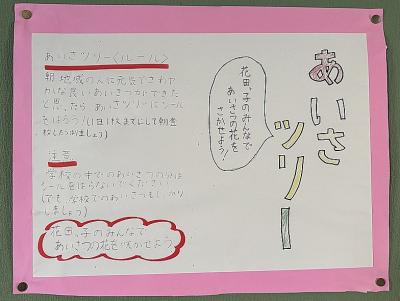 あいさツリー
花田っ子のみんなで
あいさつの花を
さかせよう!
あいさツリー〈ルール〉
朝、地域の人に元気でさわや
かな良いあいさつができた
と思ったらあいさツリーにシール
をはろう!(1日1枚までにして朝登
校したらはりましょう)
注意
学校の中でのあいさつの分は
シールをはらないでください
(でも、学校でのあいさつもしっかり
しましょう)
花田っ子のみんなで
あいさつの花を咲かせよう。